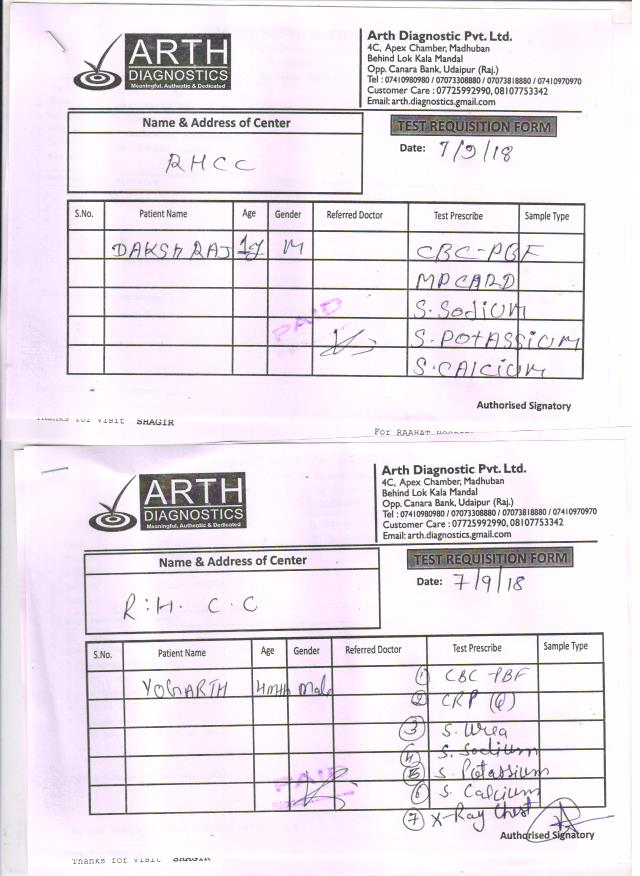 ARTH
DIAGNOSTICS
Meaningful, Authentic & Dedicated
Arth Diagnostic Pvt. Ltd.
4C, Apex Chamber, Madhuban
Behind Lok Kala Mandal
Opp. Canara Bank, Udaipur (Raj.)
Tel : 07410980980 / 07073308880 / 07073818880 / 07410970970
Customer Care : 07725992990, 08107753342
Email: arth.diagnostics.gmail.com
Name & Address of Center
TEST REQUISITION FORM
RHCC
Date: 7/9/18
S.No. Patient Name Age Gender Referred Doctor Test Prescribe Sample Type
DAKSH RAJ 1y M CBC-PBF
MP CARD
S. Sodium
PAID
S. POTASSIUM
S. CALCIUM
Authorised Signatory
Thanks for Visit SHAGIR
For RAAHAT
ARTH
DIAGNOSTICS
Meaningful, Authentic & Dedicated
Arth Diagnostic Pvt. Ltd.
4C, Apex Chamber, Madhuban
Behind Lok Kala Mandal
Opp. Canara Bank, Udaipur (Raj.)
Tel : 07410980980 / 07073308880 / 07073818880 / 07410970970
Customer Care : 07725992990, 08107753342
Email: arth.diagnostics.gmail.com
Name & Address of Center
TEST REQUISITION FORM
R.H. C.C
Date: 7/9/18
S.No. Patient Name Age Gender Referred Doctor Test Prescribe Sample Type
YOGARTH Male 1 CBC-PBF
2 CRP (Q)
3 S. Urea
4 S. Sodium
5 S. Potassium
PAID
6 S. Calcium
7 X-Ray Chest
Authorised Signatory
Thanks for Visit SHAGIR